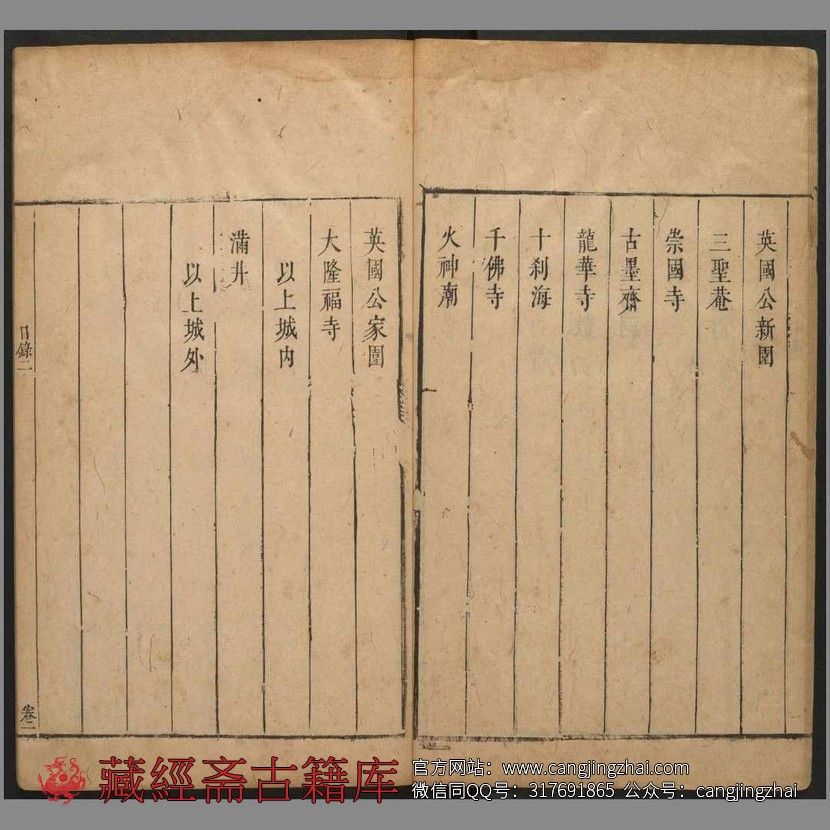 英國公新園
三聖菴
崇國寺
古墨齋
龍華寺
十刹海
千佛寺
火神廟
英國公家園
大隆福寺
以上城内
滿井
以上城外
目錄二
卷二
藏經斋古籍库
官方网站：www.cangjingzhai.com
微信同QQ号：317691865 公众号：cangjingzhai